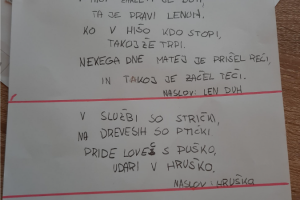 TA JE PRAVI LENUH,
KO V HIŠO KDO STOPI,
TAKOJ ŽE TRPI.
NEKEGA DNE MATEJ JE PRIŠEL REČI,
IN TAKOJ JE ZAČEL TEČI.
NASLOV: LEN DUH
V SLUŽBI SO STRIČKI,
NA DREVESIH SO PTIČKI,
PRIDE LOVEC S PUŠKO,
UDARI V HRUŠKO.
NASLOV: HRUŠKA